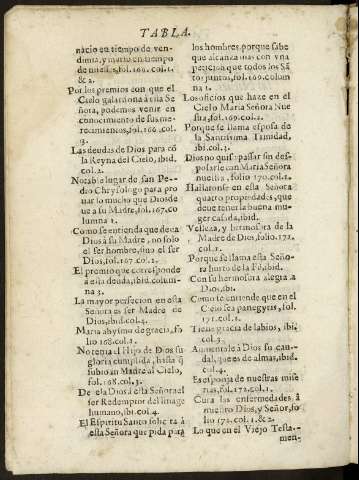 TABLA.
nacio en tiempo de ven-
dimia, y murio en tiempo
de miesses, fol. 169. col. 1.
& 2.
Por los premios con que el
Cielo galardona à esta Se
ñora, podemos venir en
conocimiento de sus me-
recimientos, fol. 166. col.
3.
Las deudas de Dios para cō
la Reyna del Cielo, ibid.
col. 2.
Notable lugar de san Pe-
dro Chrysologo para pro
uar lo mucho que Dios de
ue a su Madre, fol. 167. co
lumna 1.
Como se entienda que deua
Dios à su Madre, no solo
el ser hombre, sino el ser
Dios, fol. 167. col. 2.
El premio que corresponde
a esta deuda, ibid. colum-
na 3.
La mayor perfecion en esta
Señora es ser Madre de
Dios, ibid. col. 4.
Maria abysmo de gracia, fo
lio 168. col. 1.
No tenia el Hijo de Dios su
gloria cumplida, hasta q̄
subio su Madre al Cielo,
fol. 168. col. 3.
Deuela Dios à esta Señora el
ser Redemptor del linage
humano, ibi. col. 4.
El Espiritu Santo solicita à
esta Señora que pida para
los hombres, porque sabe
que alcanza mas con vna
peticion que todos los Sā
tos juntos, fol. 169. colum
na 1.
Los oficios que haze en el
Cielo Maria Señora Nue
stra, fol. 169. col. 2.
Porque se llama esposa de
la Santissima Trinidad,
ibi. col. 3.
Dios no quiso passar sin des-
posarse con Maria Señora
nuestra. folio 170. col. 1.
Hallaronse en esta Señora
quatro propriedades, que
deue tener la buena mu-
ger casada, ibid.
Velleza, y hermosura de la
Madre de Dios, folio. 172.
col. 1.
Porque se llama esta Seño-
ra hurto de la Fè, ibid.
Con su hermosura alegra à
Dios, ibi.
Como se entiende que en el
Cielo sea panegyris, fol.
171. col. 1.
Tiene gracia de labios, ibi.
col. 3.
Aumentale à Dios su cau-
dal, que es de almas, ibid.
col. 4.
Es esponja de nuestras mise
rias, fol. 172. col. 1.
Cura las enfermedades à
nuestro Dios, y Señor, fo
lio 172. col. 1. & 2.
Lo que en el Viejo Testa-
men-